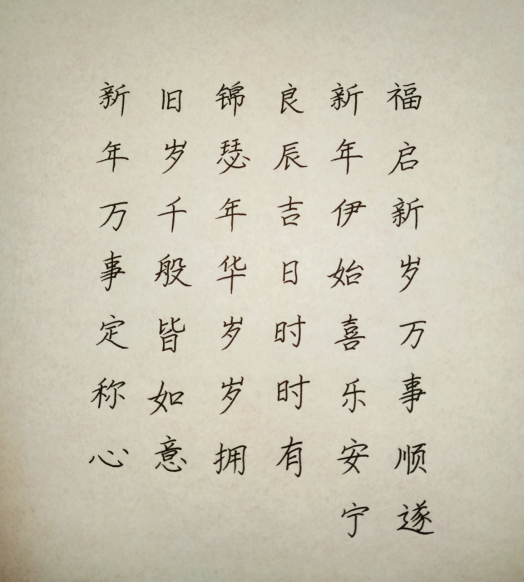 福启新岁万事顺遂
新年伊始喜乐安宁
良辰吉日时时有
锦瑟年华岁岁拥
旧岁千般皆如意
新年万事定称心